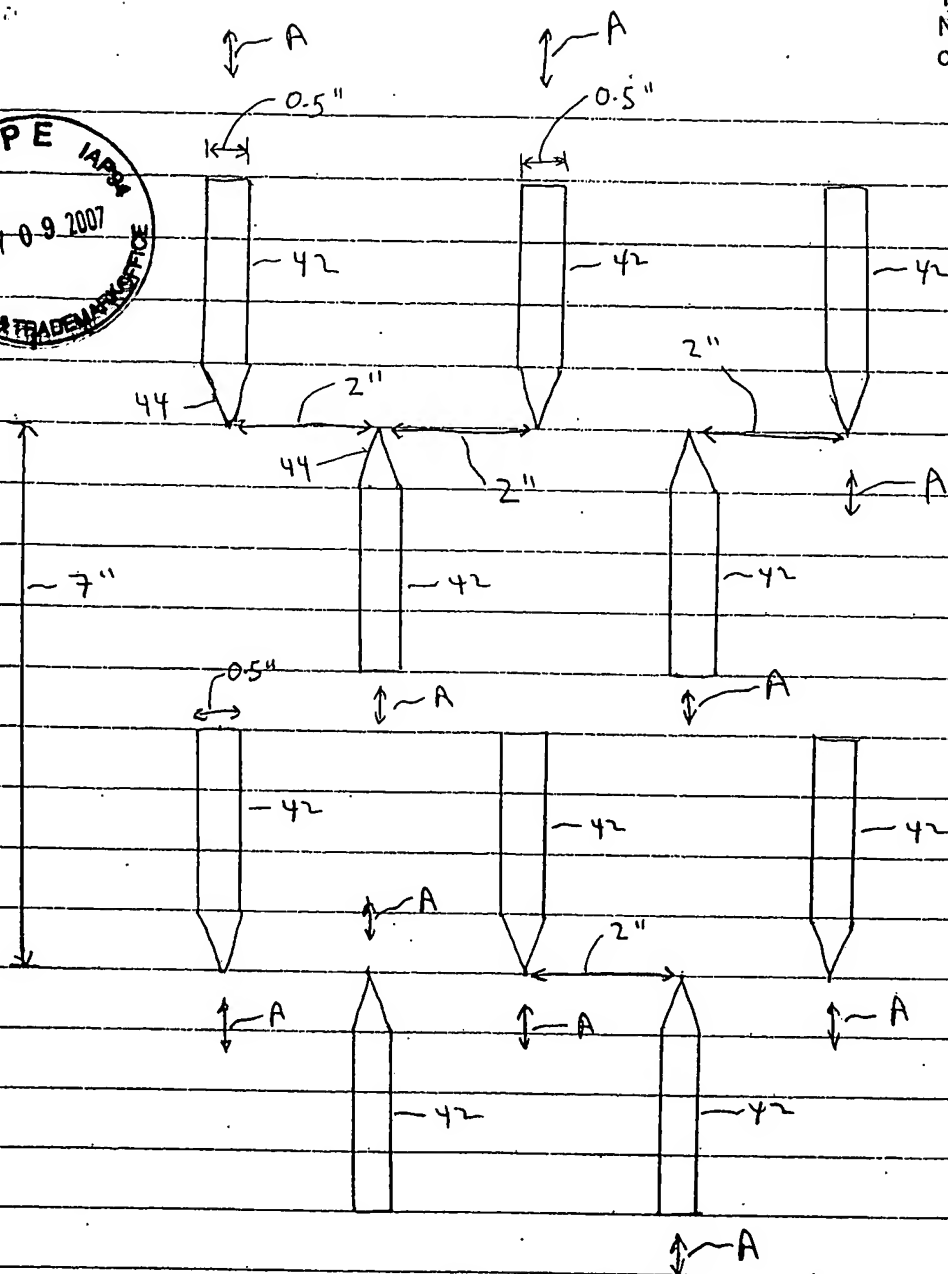 A A
0.5" 0.5"
PE IAP94
0 9 2007
TRADEMARK OFFICE
42 42 42
44 2" 2"
44 2" A
~ 7" 42 42
0.5" A A
42 42 42
A 2"
A A A
42 42
A